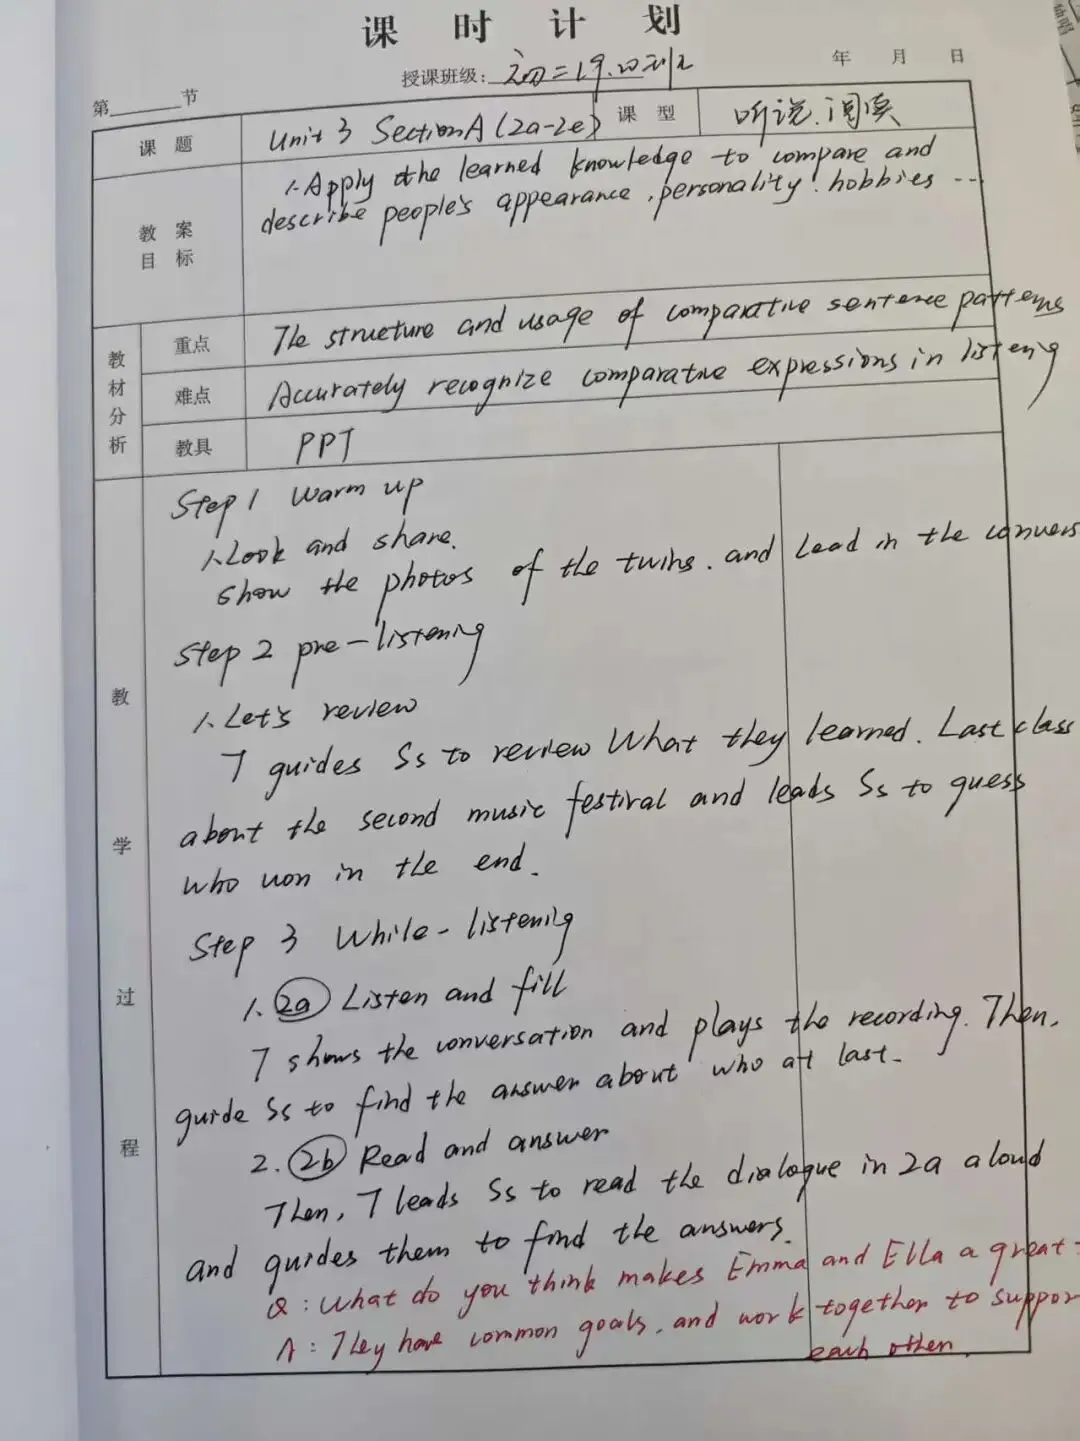 课 时 计 划
第 节 授课班级: 初二19.四班 年 月 日
课 题 Unit 3 Section A (2a-2e) 课 型 听说.阅读
教案目标
1. Apply the learned knowledge to compare and
describe people's appearance, personality. hobbies ...
教材分析
重点 The structure and usage of comparative sentence patterns
难点 Accurately recognize comparative expressions in listening
教具 PPT
教学过程
Step 1 Warm up
1. Look and share.
show the photos of the twins. and lead in the convers
Step 2 pre-listening
1. Let's review
T guides Ss to review What they learned. Last class
about the second music festival and leads Ss to guess
who won in the end.
Step 3 While-listening
1. 2a Listen and fill
T shows the conversation and plays the recording. Then,
guide Ss to find the answer about who at last.
2. 2b Read and answer
Then, T leads Ss to read the dialogue in 2a aloud
and guides them to find the answers.
Q: What do you think makes Emma and Ella a great
A: They have common goals, and work together to suppor
each other.